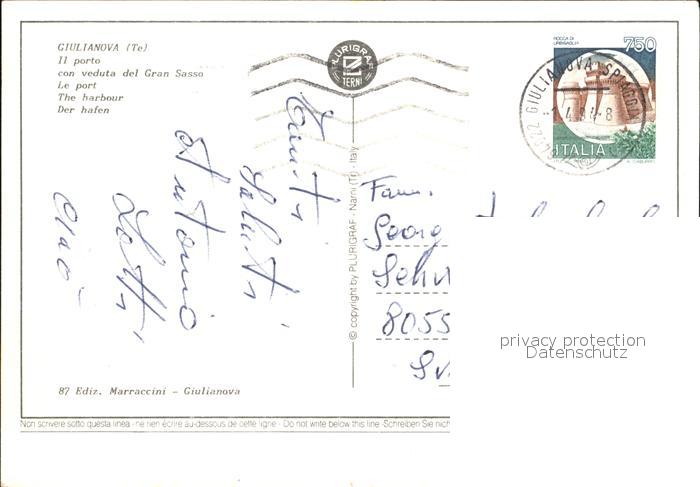 GIULIANOVA (Te)
Il porto
con veduta del Gran Sasso
Le port
The harbour
Der hafen
PLURIGRAF
TERNI
ROCCA DI
URBISAGLIA
750
GIULIANOVA SPIAGGIA
ITALIA
Tanti
Saluti
Antonio
Ciao
© copyright by PLURIGRAF - Narni (Tr) - Italy
Fam.
Georg
8055
privacy protection
Datenschutz
87 Ediz. Marraccini - Giulianova
Non scrivere sotto questa linea - ne rien écrire au-dessous de cette ligne - Do not write below this line - Schreiben Sie nich